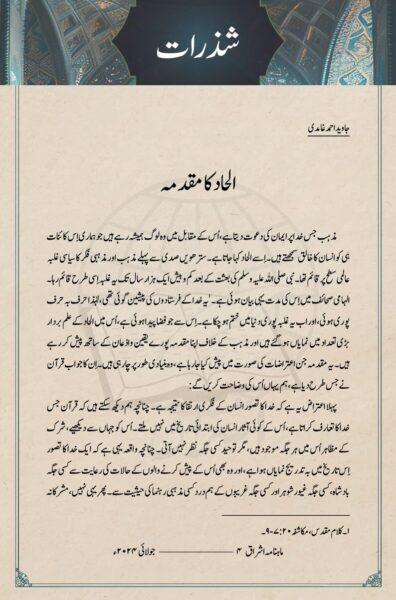 شذرات
جاوید احمد غامدی
الحاد کا مقدمہ
مذہب جس خدا پر ایمان کی دعوت دیتا ہے، اُس کے مقابل میں وہ لوگ ہمیشہ رہے ہیں جو ہماری اِس کائنات
ہی کو انسان کا خالق سمجھتے ہیں۔ اِسے الحاد کہا جاتا ہے۔ سترھویں صدی سے پہلے مذہب اور مذہبی فکر کا سیاسی غلبہ
عالمی سطح پر قائم تھا۔ نبی صلی اللہ علیہ وسلم کی بعثت کے بعد کم و بیش ایک ہزار سال تک یہ غلبہ اِسی طرح قائم رہا۔
الہامی صحائف میں اِس کی مدت یہی بیان ہوئی ہے۔¹ یہ خدا کے فرستادوں کی پیشین گوئی تھی، لہٰذا حرف بہ حرف
پوری ہوئی، اور اب یہ غلبہ پوری دنیا میں ختم ہو چکا ہے۔ اِس سے جو فضا پیدا ہوئی ہے، اُس میں الحاد کے علم بردار
بڑی تعداد میں نمایاں ہو گئے ہیں اور مذہب کے خلاف اپنا مقدمہ پورے یقین و اذعان کے ساتھ پیش کر رہے
ہیں۔ یہ مقدمہ جن اعتراضات کی صورت میں پیش کیا جا رہا ہے، وہ بنیادی طور پر چار ہی ہیں۔ اِن کا جواب قرآن
نے جس طرح دیا ہے، ہم یہاں اُس کی وضاحت کریں گے:
پہلا اعتراض یہ ہے کہ خدا کا تصور انسان کے فکری ارتقا کا نتیجہ ہے۔ چنانچہ ہم دیکھ سکتے ہیں کہ قرآن جس
خدا کا تعارف کراتا ہے، اُس کے کوئی آثار انسان کی ابتدائی تاریخ میں نہیں ملتے۔ اُس کو جہاں سے دیکھیے، شرک
کے مظاہر اُس میں ہر جگہ موجود ہیں، مگر توحید کسی جگہ نظر نہیں آتی۔ چنانچہ واقعہ یہی ہے کہ ایک خدا کا تصور
اِس تاریخ میں بہ تدریج نمایاں ہوا ہے، اور وہ بھی اُس کے پیش کرنے والوں کے حالات کی رعایت سے کسی جگہ
بادشاہ، کسی جگہ غیور شوہر اور کسی جگہ غریبوں کے ہم درد کسی مذہبی رہنما کی حیثیت سے۔ پھر یہی نہیں، مشرکانہ
۱۔ کلام مقدس، مکاشفہ ۲۰: ۷-۹۔
ماہنامہ اشراق ۴ جولائی ۲۰۲۴ء